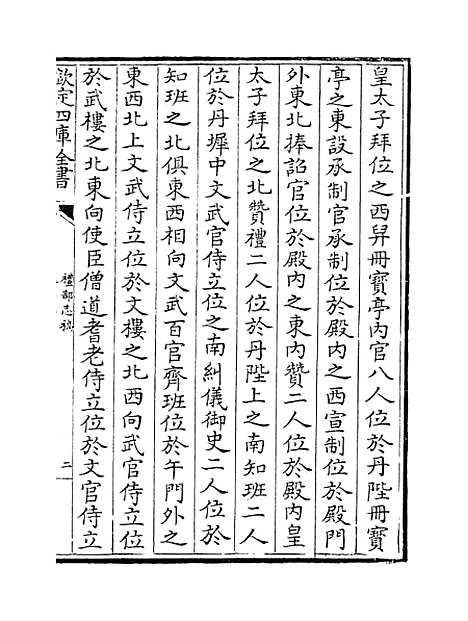 皇太子拜位之西舁冊寶亭內官八人位於丹陛冊寶
亭之東設承制官承制位於殿內之西宣制位於殿門
外東北捧詔官位於殿內之東內贊二人位於殿內皇
太子拜位之北贊禮二人位於丹陛上之南知班二人
位於丹墀中文武官侍立位之南糾儀御史二人位於
知班之北俱東西相向文武百官齊班位於午門外之
東西北上文武侍立位於文樓之北西向武官侍立位
於武樓之北東向使臣僧道耆老侍立位於文官侍立
欽定四庫全書
禮部志稿
二